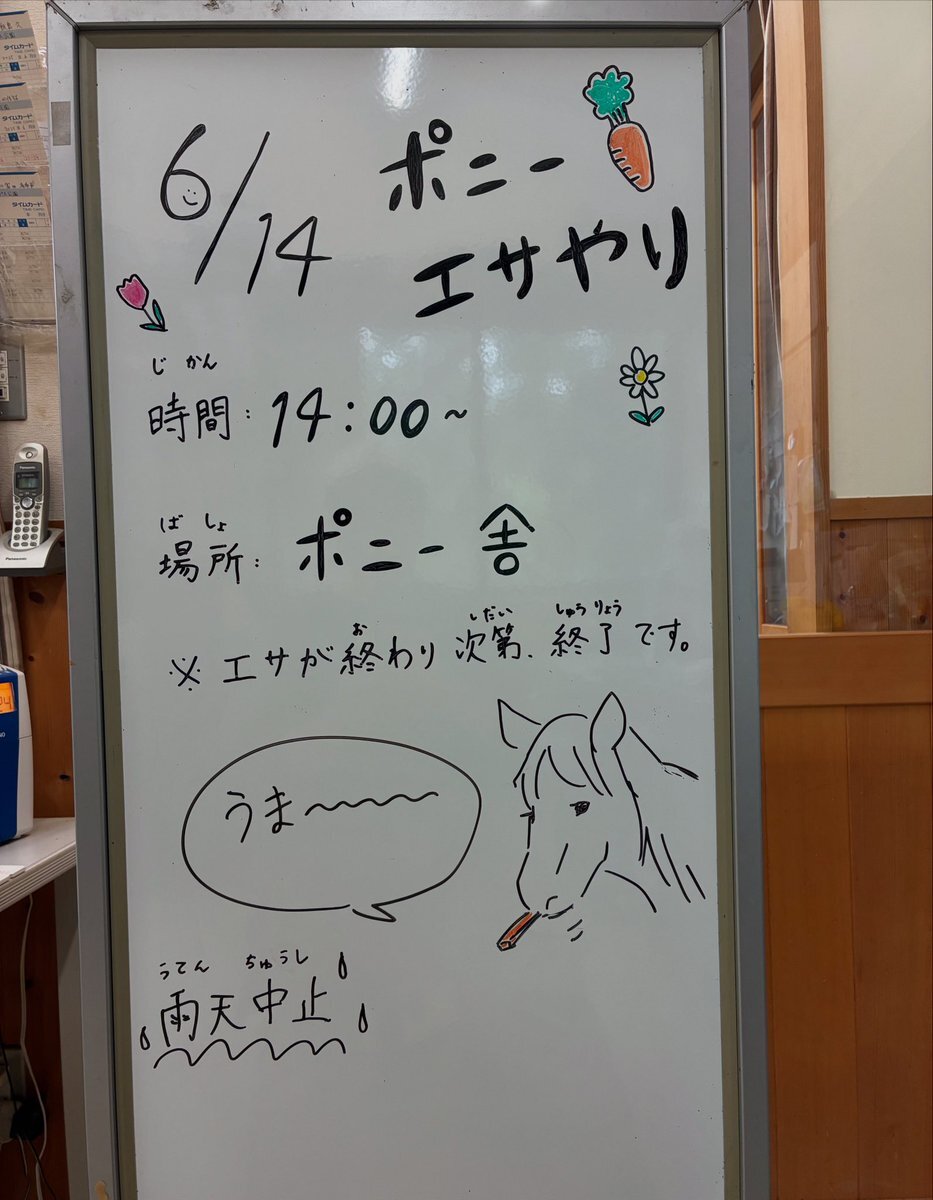 6/14 ポニー
エサやり
じかん
時間: 14:00~
ばしょ
場所: ポニー舎
お しだい しゅうりょう
※ エサが終わり次第、終了です。
うま〜〜〜〜
うてん ちゅうし
雨天中止
タイムカード
タイムカード
タイムカード
Panasonic
Panasonic